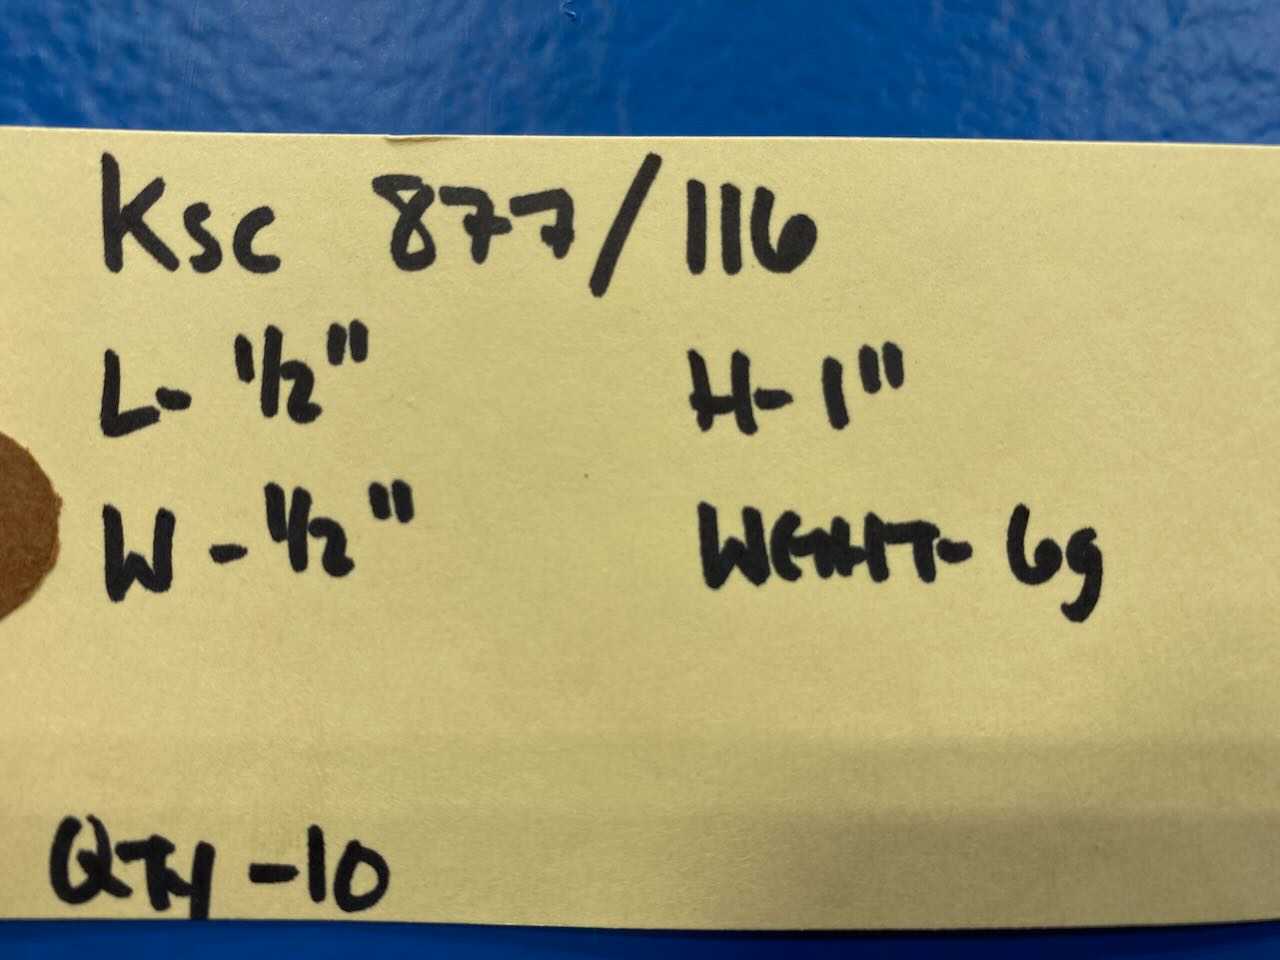 Ksc 877/116
L- 1/2" H- 1"
W - 1/2" WEIGHT- 6g
QTY - 10